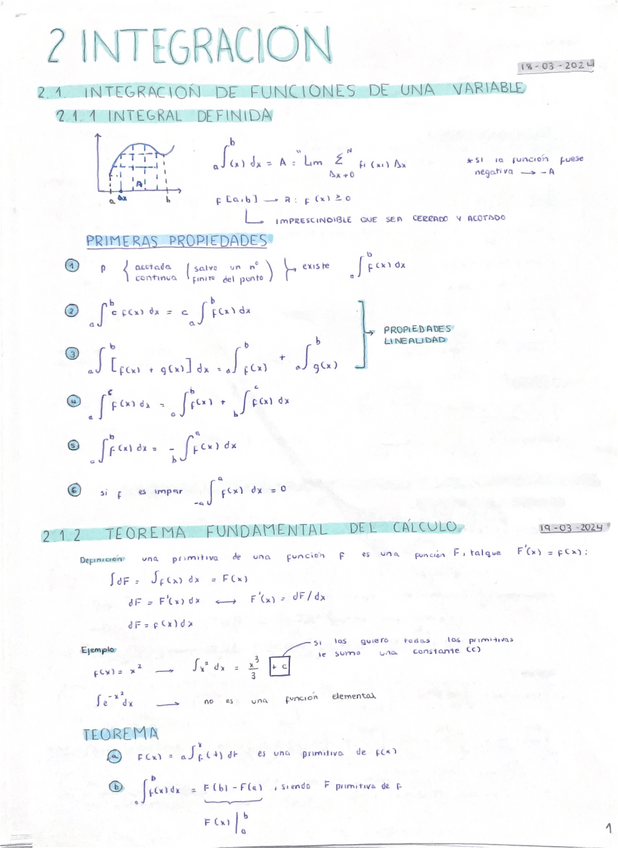 2 INTEGRACION
18-03-2024
2.1. INTEGRACIÓN DE FUNCIONES DE UNA VARIABLE
2.1.1 INTEGRAL DEFINIDA
a∫^b f(x) dx = A = "Lim Δx→0 Σ^N fi (xi) Δx
* si la función fuese
negativa → -A
a Δx A b
f [a,b] → A : f(x) ≥ 0
IMPRESCINDIBLE QUE SEA CERRADO Y ACOTADO
PRIMERAS PROPIEDADES
1 f { acotada continua (salvo un nº finito del punto) } existe a∫^b f(x) dx
2 a∫^b c f(x) dx = c a∫^b f(x) dx
PROPIEDADES
LINEALIDAD
3 a∫^b [f(x) + g(x)] dx = a∫^b f(x) + a∫^b g(x)
4 a∫^c f(x) dx = a∫^b f(x) + b∫^c f(x) dx
5 a∫^b f(x) dx = - b∫^a f(x) dx
6 si f es impar -a∫^a f(x) dx = 0
2.1.2 TEOREMA FUNDAMENTAL DEL CÁLCULO
19-03-2024
Definición: una primitiva de una función f es una función F, talque F'(x) = f(x):
∫dF = ∫f(x) dx = F(x)
dF = F'(x) dx ⟷ F'(x) = dF/dx
dF = f(x) dx
si las quiero todas las primitivas
le sumo una constante (c)
Ejemplo:
f(x) = x² → ∫x² dx = x³/3 + c
∫e^-x² dx → no es una función elemental
TEOREMA
a F(x) = a∫^x f(t) dt es una primitiva de f(x)
b a∫^b f(x) dx = F(b) - F(a) , siendo F primitiva de f.
F(x) |_a^b
1